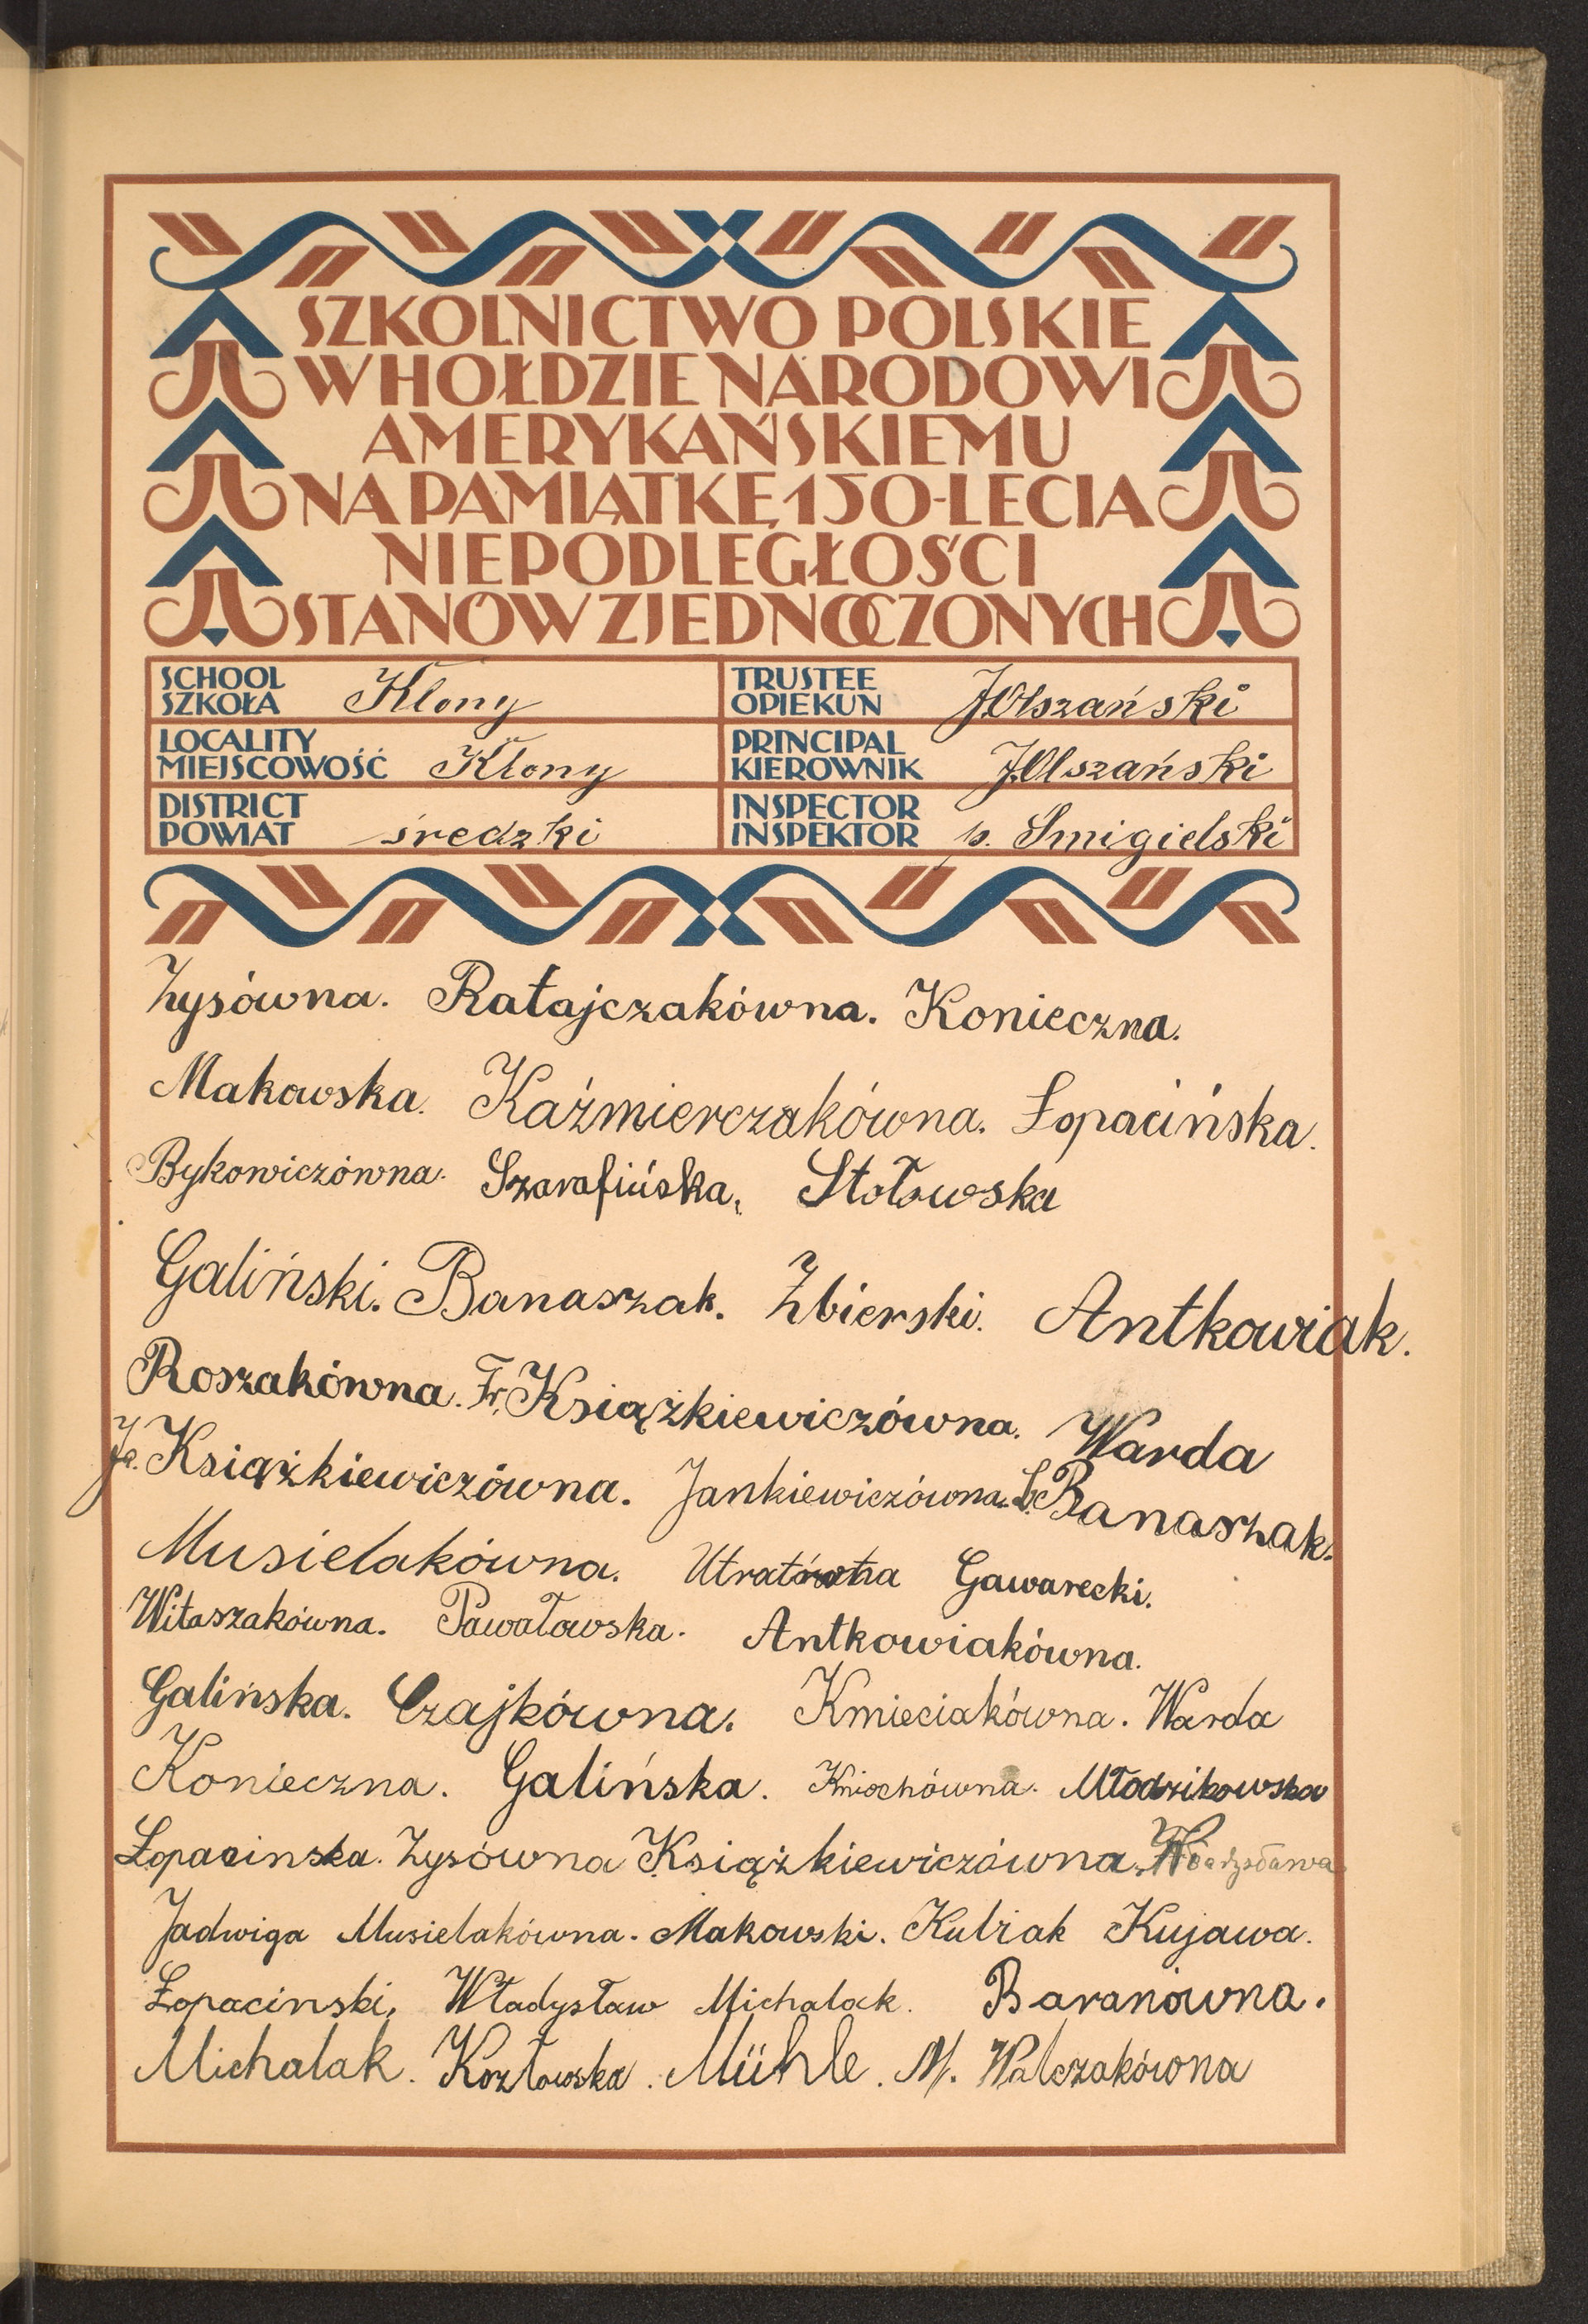 SZKOLNICTWO POLSKIE
W HOŁDZIE NARODOWI
AMERYKAŃSKIEMU
NA PAMIĄTKĘ 150-LECIA
NIEPODLEGŁOŚCI
STANÓW ZJEDNOCZONYCH
SCHOOL
SZKOŁA Klony
TRUSTEE
OPIEKUN J.Olszański
LOCALITY
MIEJSCOWOŚĆ Klony
PRINCIPAL
KIEROWNIK J.Olszański
DISTRICT
POWIAT średzki
INSPECTOR
INSPEKTOR p. Smigielski
Zysówna. Ratajczakówna. Konieczna.
Makowska. Kaźmierczakówna. Łopacińska.
Bykowiczówna. Szarafińska, Stołowska
Galiński. Banaszak. Zbierski. Antkowiak.
Roszakówna. Fr. Książkiewiczówna. Warda
Ja. Książkiewiczówna. Jankiewiczówna. S. Banaszak.
Musielakówna. Utratówna Gawarecki.
Witaszakówna. Pawałowska. Antkowiakówna.
Galińska. Czajkówna. Kmieciakówna. Warda
Konieczna. Galińska. Kniochówna. Młodzikowska
Łopacinska. Zysówna Książkiewiczówna. Władysława.
Jadwiga Musielakówna. Makowski. Kubiak Kujawa.
Łopacinski, Władysław Michalak. Baranówna.
Michalak. Kozłowska. Mühle. M. Walczakówna